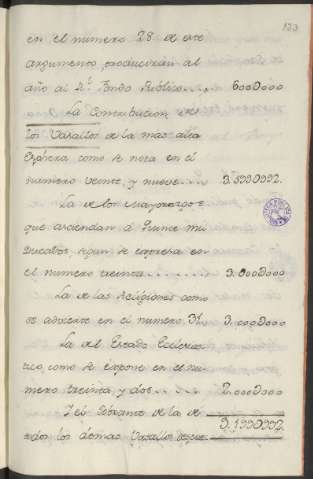 123
en el numero 28 de este
argumento, produciran al
año al R.l fondo Publico....
600000
La Contribucion de
los Vasallos de la mas alta
esphera, como se nota en el
numero veinte, y nueve....
La de los Mayorazgos
que asciendan á quince mil
Ducados, segun se expresa en
el numero treinta.......
3.000000
La de las Religiones como
se advierte en el numero 31.
3.000000
La del Estado Eclesias-
tico, como se expone en el nu-
mero treinta, y dos....
2.000000
Y el Sobrante de la de
todos los demas Vasallos